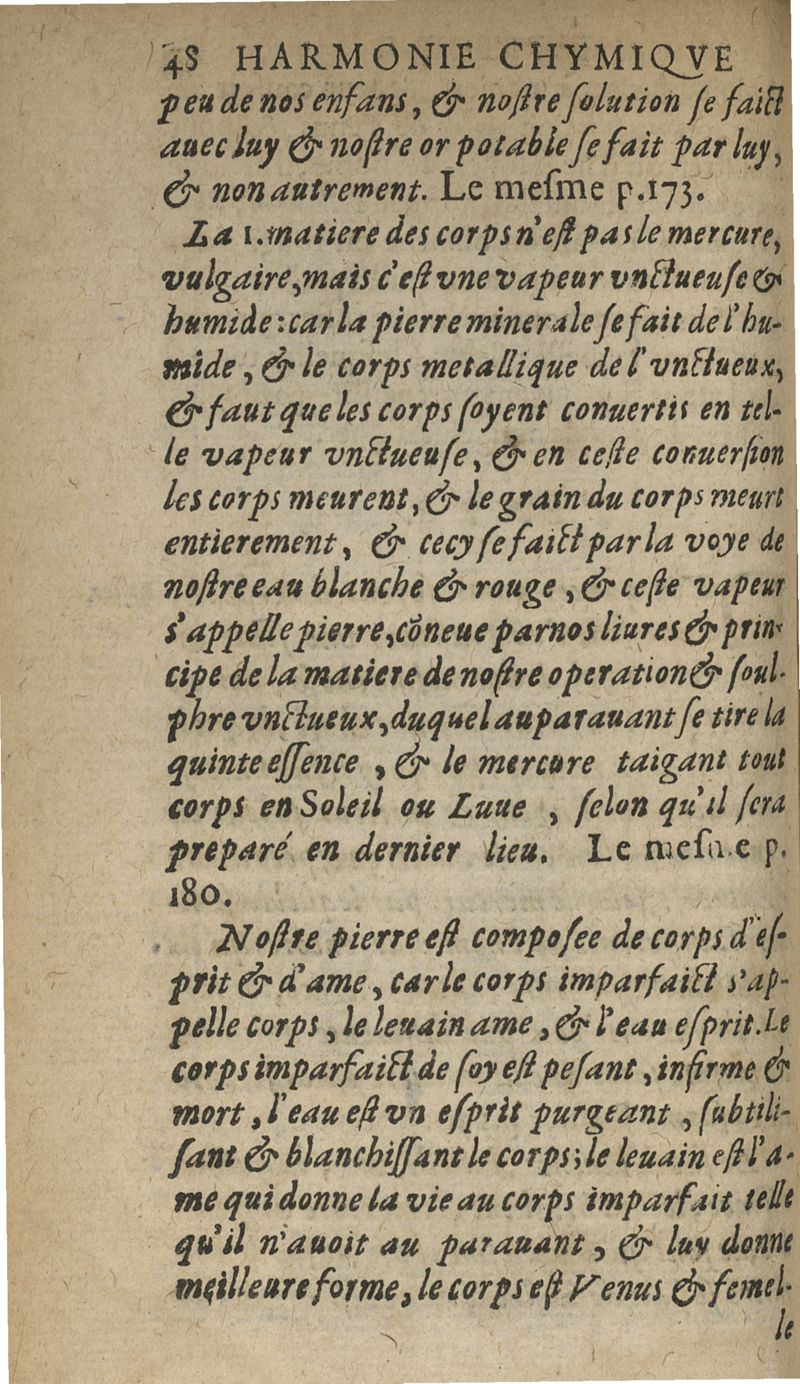 48 HARMONIE CHYMIQVE
peu de nos enfans, & noſtre ſolution ſe faict
auec luy & noſtre or potable ſe fait par luy,
& non autrement. Le meſme p.173.
La 1.matiere des corps n'eſt pas le mercure,
vulgaire,mais c'eſt vne vapeur vnctueuſe &
humide:car la pierre minerale ſe fait de l'hu-
mide, & le corps metallique de l'vnctueux,
& faut que les corps ſoyent conuertis en tel-
le vapeur vnctueuſe, & en ceſte conuerſion
les corps meurent, & le grain du corps meurt
entierement, & cecy ſe faict par la voye de
noſtre eau blanche & rouge, & ceſte vapeur
s'appelle pierre,cõneue par nos liures & prin-
cipe de la matiere de noſtre operation & ſoul-
phre vnctueux,duquel auparauant ſe tire la
quinte eſſence, & le mercure taigant tout
corps en Soleil ou Luue, ſelon qu'il ſera
preparé en dernier lieu. Le meſme p.
180.
Noſtre pierre eſt compoſee de corps d'eſ-
prit & d'ame, car le corps imparfaict s'ap-
pelle corps, le leuain ame, & l'eau eſprit.Le
corps imparfaict de ſoy eſt peſant, infirme &
mort, l'eau eſt vn eſprit purgeant, ſubtili-
ſant & blanchiſſant le corps; le leuain eſt l'a-
me qui donne la vie au corps imparfait telle
qu'il n'auoit au parauant, & luy donne
meilleure forme, le corps eſt Venus & femel-
le